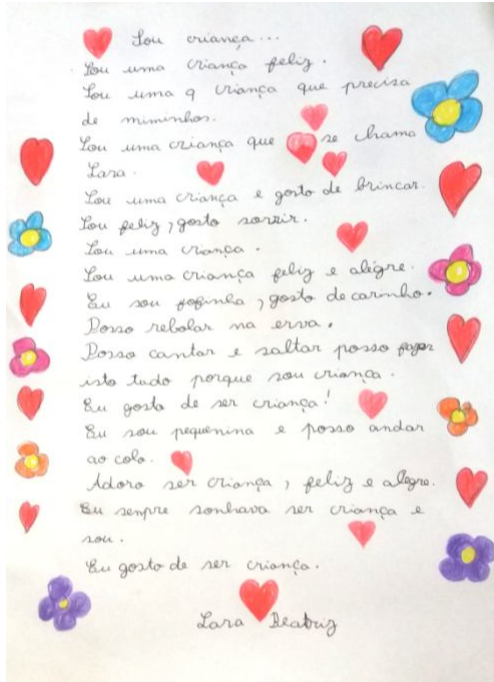 Sou criança...
Sou uma criança feliz.
Sou uma q criança que precisa
de miminhos.
Sou uma criança que se chama
Lara.
Sou uma criança e gosto de brincar.
Sou feliz, gosto sorrir.
Sou uma criança.
Sou uma criança feliz e alegre.
Eu sou fofinha, gosto de carinho.
Posso rebolar na erva.
Posso cantar e saltar posso fazer
isto tudo porque sou criança.
Eu gosto de ser criança!
Eu sou pequenina e posso andar
ao colo.
Adoro ser criança, feliz e alegre.
Eu sempre sonhava ser criança e
sou.
Eu gosto de ser criança.
Lara Beatriz